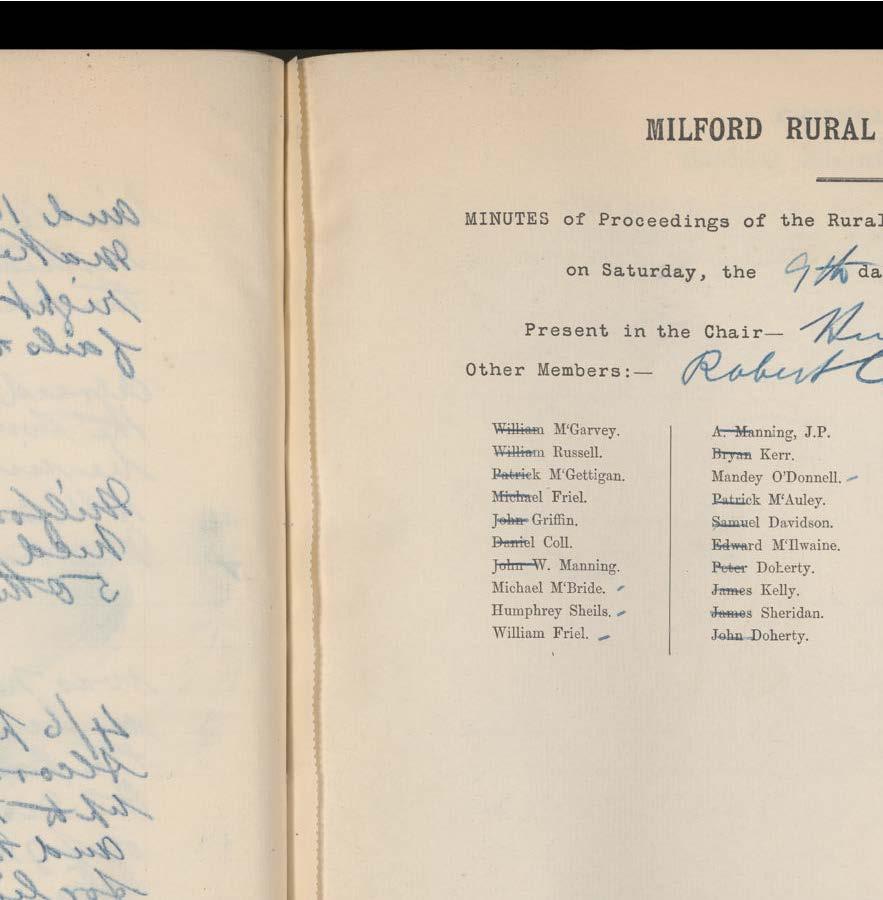 and
make
right
fails
Milford
held
50
4/6
and
MILFORD RURAL
MINUTES of Proceedings of the Rural
on Saturday, the 9th da
Present in the Chair— Hu
Other Members:— Robert C
William M'Garvey.
William Russell.
Patrick M'Gettigan.
Michael Friel.
John Griffin.
Daniel Coll.
John W. Manning.
Michael M'Bride.
Humphrey Sheils.
William Friel.
A. Manning, J.P.
Bryan Kerr.
Mandey O'Donnell.
Patrick M'Auley.
Samuel Davidson.
Edward M'Ilwaine.
Peter Doherty.
James Kelly.
James Sheridan.
John Doherty.